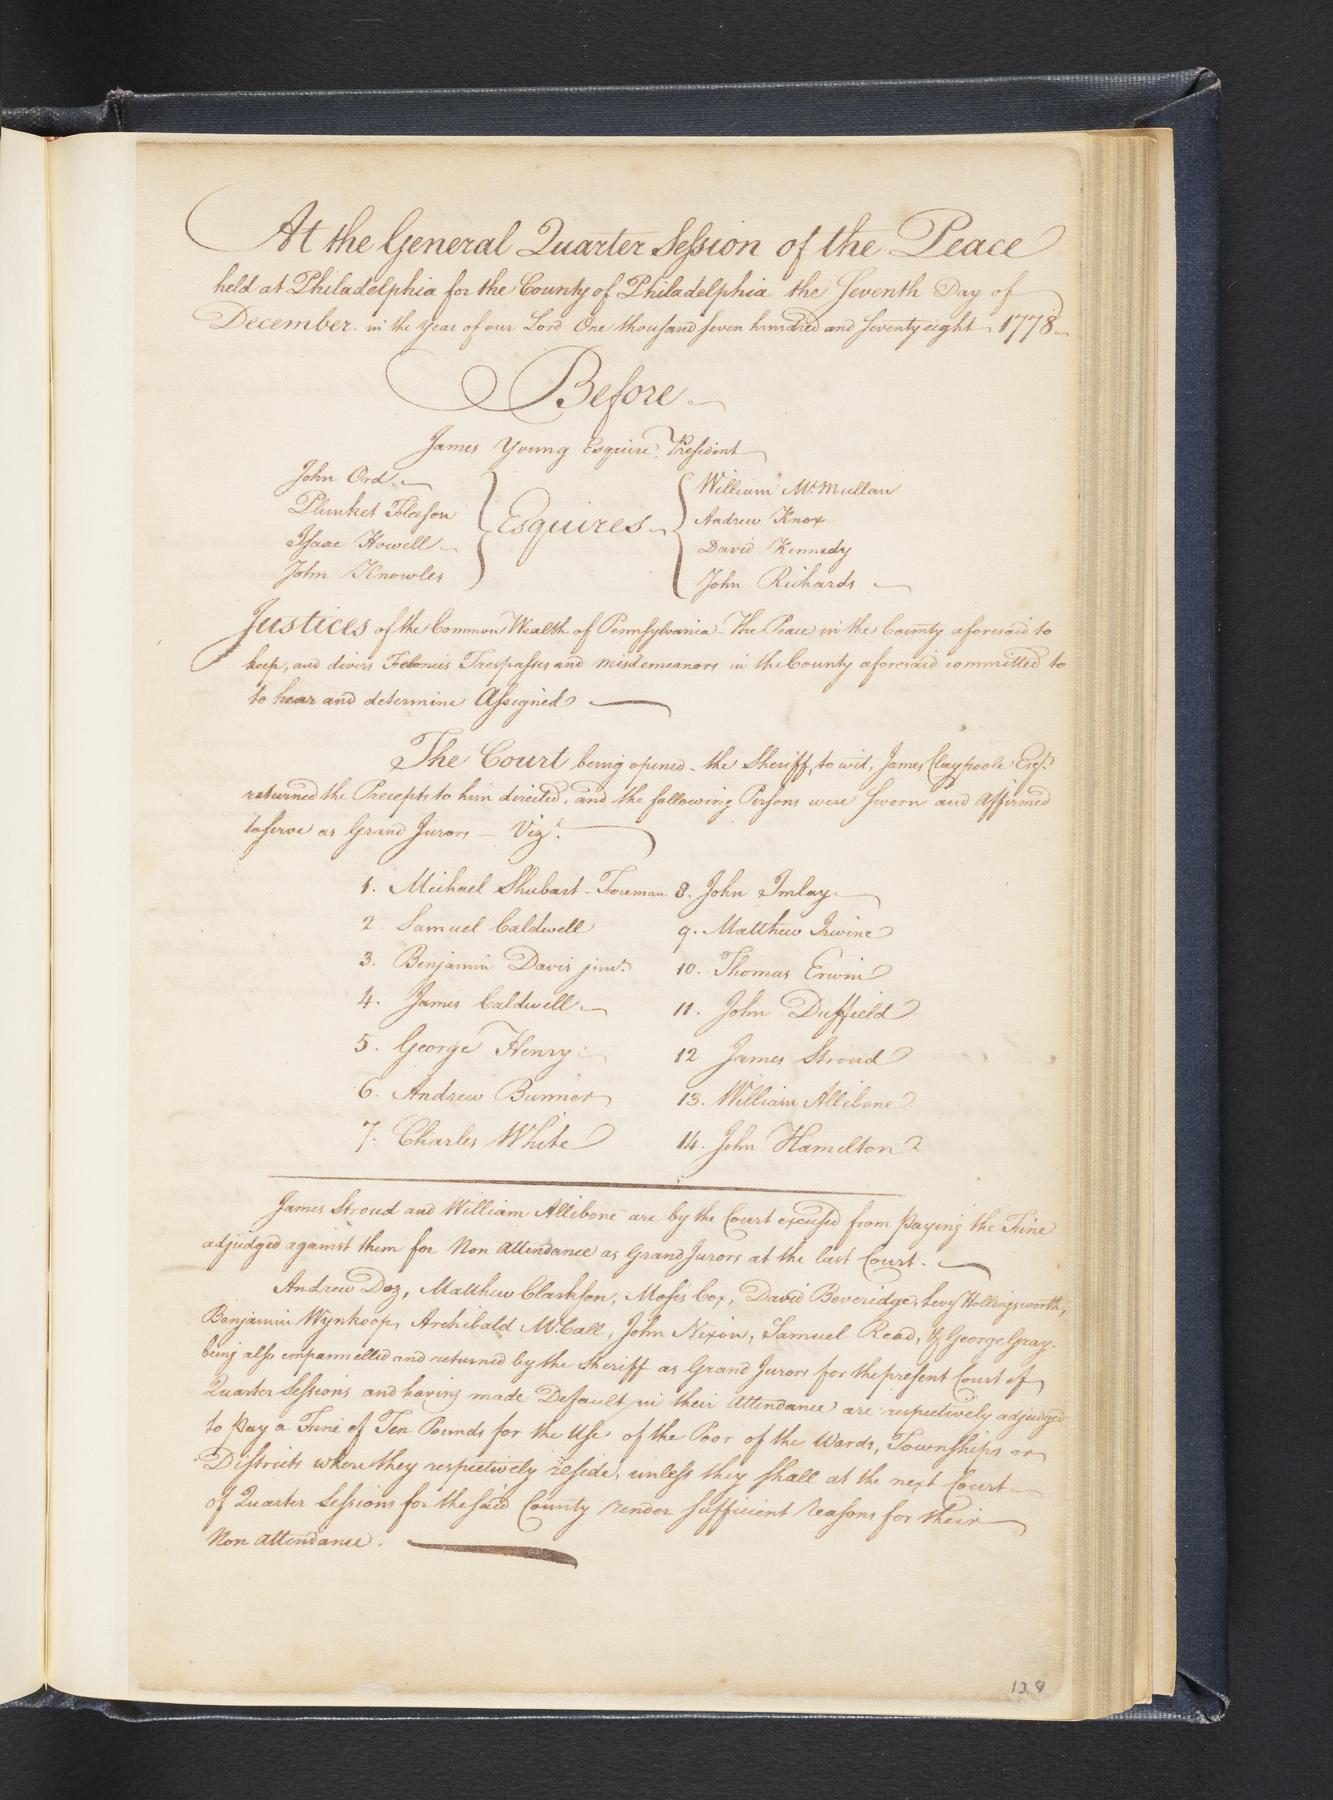 At the General Quarter Session of the Peace
held at Philadelphia for the County of Philadelphia the Seventh Day of
December in the Year of our Lord One thousand seven hundred and seventy eight 1778
Before
James Young Esquire President
John Ord
Plunket Fleeson
Isaac Howell
John Knowles
Esquires
William McMullan
Andrew Knox
David Kennedy
John Richards
Justices of the Common Wealth of Pennsylvania The Peace in the County aforesaid to
keep, and divers Felonies Trespasses and misdemeanors in the County aforesaid committed to
to hear and determine Assigned
The Court being opened the Sheriff, to wit, James Claypoole Esqr.
returned the Precepts to him directed, and the following Persons were Sworn and Affirmed
to serve as Grand Jurors — Vizt.
1. Michael Shubart - Foreman
2. Samuel Caldwell
3. Benjamin Davis junr.
4. James Caldwell
5. George Henry
6. Andrew Bunner
7. Charles White
8. John Imlay
9. Matthew Irwine
10. Thomas Erwin
11. John Duffield
12 James Stroud
13. William Allibone
14. John Hamilton
James Stroud and William Allibone are by the Court excused from paying the Fine
adjudged against them for Non Attendance as Grand Jurors at the last Court.
Andrew Doz, Matthew Clarkson, Moses Cox, David Beveridge, Levy Hollingsworth,
Benjamin Wynkoop, Archibald McCall, John Nixon, Samuel Read, & George Gray.
being also empannelled and returned by the Sheriff as Grand Jurors for the present Court of
Quarter Sessions and having made Default in their Attendance are respectively adjudged
to pay a Fine of Ten Pounds for the Use of the Poor of the Wards, Townships or
Districts where they respectively reside, unless they shall at the next Court
of Quarter Sessions for the said County render sufficient reasons for their
Non Attendance.
128